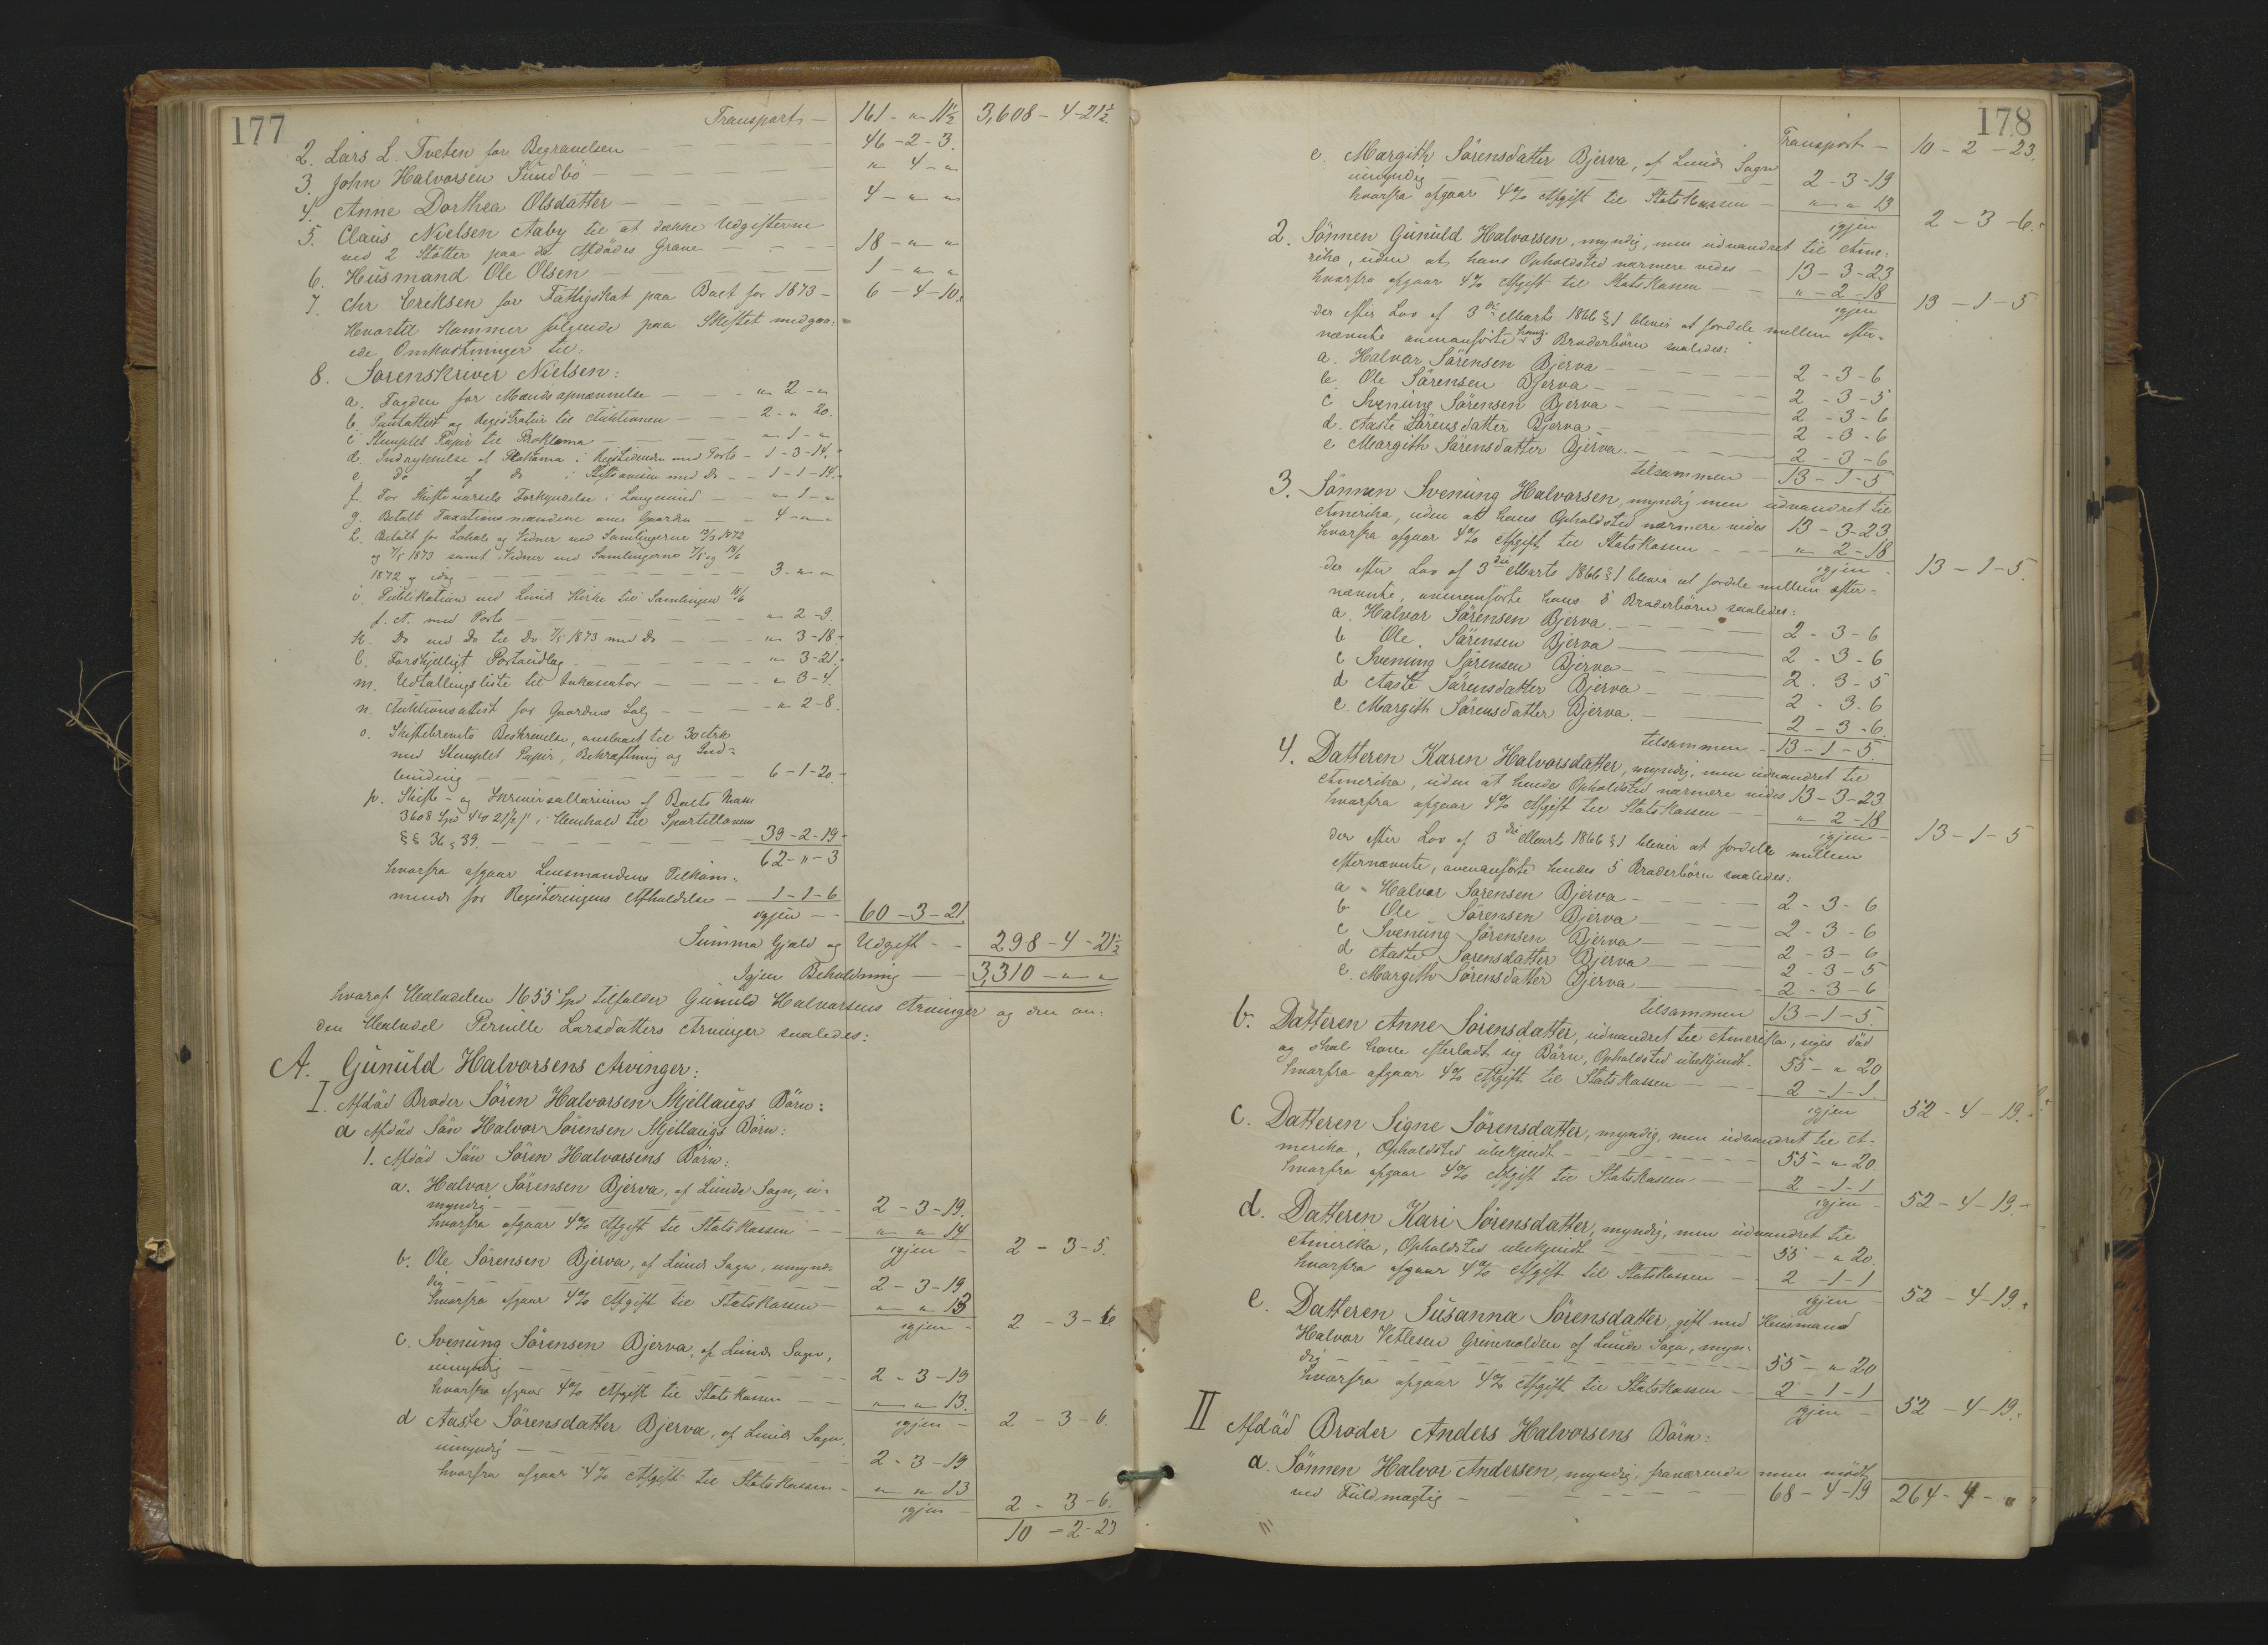 177
Transport — 161 - " 11½ 3,608 - 4 - 21½
2. Lars L. Tveten for Begravelsen — 46 - 2 - 3.
3. John Halvorsen Sundbö — " 4 - "
4. Anne Dorthea Olsdatter — 4 - " "
5. Claus Nielsen Aaby til at dække Udgifterne
ved 2 Støtter paa de Afdødes Grave — 18 - " "
6. Husmand Ole Olsen — 1 - " "
7. Chr Ereksen for Fattigskat paa Boet for 1873 — 6 - 4 - 10.
Hvortil kommer følgende paa Skiftet medgaa-
ede Omkostninger til:
8. Sorenskriver Nielsen:
a. Fogden for Mændsopnævnelse — " 2 - "
b. Pantattest og Registratur til Auktionen — 2 - " 20.
c Stemplet Papir til Proklama — " 1 - "
d. Indrykkelse af Proklama i Rigstidende med Porto — 1 - 3 - 14.
e do af do i Stiftsavisen med do — 1 - 1 - 14.
f. For Skiftevarsels Forkyndelse i Langesund — " 1 - "
g. Betalt Taxationsmændene over Gaarden — 4 - " "
h. Betalt for Lokale og Vidner ved Samlingerne 1872
og 1873 samt Vidner ved Samlingerne
1872 og idag — 3 - " "
i. Publikation ved Lunde Kirke til Samlingen 18/6
f. A. med Porto — " 2 - 9.
k. Do ved do til do 7/5 1873 med do — " 3 - 18.
l. Forskjelligt Portoudlæg — " 3 - 21.
m. Udtællingsliste til Inkassator — " 3 - 4.
n. Auktionsattest for Gaardens Salg — " 2 - 8.
o. Skiftebrevets Beskrivelse, anslaaet til 30 Ark
med Stemplet Papir, Bekræftning og Ind-
binding — 6 - 1 - 20.
p. Skifte- og Skriversallarium af Boets Masse
3608 Spd 4 21½ i Henhold til Sportellovens
§§ 36, 39. — 39 - 2 - 19
62 - " - 3
hvorfra afgaar Lensmandens Tilkom-
mende for Registeringens Afholdelse — 1 - 1 - 6
igjen — 60 - 3 - 21
Summa Gjæld og Udgift — 298 - 4 - 21½
Igjen Beholdning — 3,310 - " "
hvoraf Halvdelen 1655 Spd tilfalder Gunuld Halvorsens Arvinger og den an-
den Halvdel Pernille Larsdatters Arvinger saaledes:
A. Gunuld Halvorsens Arvinger:
I. Afdöd Broder Sören Halvorsen Mjellaugs Börn:
a Afdöd Sön Halvor Sörensen Mjellaugs Börn:
1. Afdöd Sön Sören Halvorsens Börn:
a. Halvor Sörensen Bjerva, af Lunde Sogn, u-
myndig — 2 - 3 - 19.
hvorfra afgaar 4% Afgift til Statskassen — " " 14
igjen — 2 - 3 - 5.
b. Ole Sörensen Bjerva, af Lunde Sogn, umyn-
dig — 2 - 3 - 19
hvorfra afgaar 4% Afgift til Statskassen — " " 13
igjen — 2 - 3 - 6
c. Svenung Sörensen Bjerva, af Lunde Sogn,
umyndig — 2 - 3 - 19
hvorfra afgaar 4% Afgift til Statskassen — " " 13.
igjen — 2 - 3 - 6.
d Aaste Sörensdatter Bjerva, af Lunde Sogn,
umyndig — 2 - 3 - 19
hvorfra afgaar 4% Afgift til Statskassen — " " 13
igjen — 2 - 3 - 6.
10 - 2 - 23
178
Transport — 10 - 2 - 23.
e. Margith Sörensdatter Bjerva, af Lunde Sogn
umyndig — 2 - 3 - 19
hvorfra afgaar 4% Afgift til Statskassen — " " 13
igjen 2 - 3 - 6.
2. Sönnen Gunuld Halvorsen, myndig, men udvandret til Ame-
rika, uden at hans Opholdsted nærmere vides — 13 - 3 - 23
hvorfra afgaar 4% Afgift til Statskassen — " - 2 - 18
igjen 13 - 1 - 5
der efter Lov af 3die Marts 1866 § 1 bliver at fordele mellem efter-
nævnte ovenanførte hans 5 Broderbörn saaledes:
a. Halvor Sörensen Bjerva — 2 - 3 - 6
b. Ole Sörensen Bjerva — 2 - 3 - 5
c Svenung Sörensen Bjerva — 2 - 3 - 6
d. Aaste Sörensdatter Bjerva — 2 - 3 - 6
e Margith Sörensdatter Bjerva — 2 - 3 - 6
tilsammen — 13 - 1 - 5
3. Sönnen Svenung Halvorsen, myndig men udvandret til
Amerika, uden at hans Opholdsted nærmere vides 13 - 3 - 23
hvorfra afgaar 4% Afgift til Statskassen — " 2 - 18
igjen — 13 - 1 - 5.
der efter Lov af 3die Marts 1866 § 1 bliver at fordele mellem efter-
nævnte, ovenanførte hans 5 Broderbörn saaledes:
a. Halvor Sörensen Bjerva — 2 - 3 - 6
b Ole Sörensen Bjerva — 2 - 3 - 6
c Svenung Sörensen Bjerva — 2 - 3 - 5
d Aaste Sörensdatter Bjerva — 2 - 3 - 6
e. Margith Sörensdatter Bjerva. — 2 - 3 - 6.
tilsammen — 13 - 1 - 5.
4. Datteren Karen Halvorsdatter, myndig, men udvandret til
Amerika, uden at hendes Opholdsted nærmere vides 13 - 3 - 23
hvorfra afgaar 4% Afgift til Statskassen — " 2 - 18
igjen — 13 - 1 - 5
der efter Lov af 3die Marts 1866 § 1 bliver at fordele mellem
efternævnte, ovenanførte hendes 5 Broderbörn saaledes:
a Halvor Sørensen Bjerva — 2 - 3 - 6
b Ole Sörensen Bjerva — 2 - 3 - 6
c Svenung Sörensen Bjerva — 2 - 3 - 6
d Aaste Sorensdatter Bjerva — 2 - 3 - 5
e. Margith Sörensdatter Bjerva — 2 - 3 - 6
tilsammen 13 - 1 - 5.
b. Datteren Anne Sörensdatter, udvandret til Amerika, siges död
og skal have efterladt sig Börn, Opholdsted ubekjendt. 55 - " 20
hvorfra afgaar 4% Afgift til Statskassen — 2 - 1 - 1.
igjen 52 - 4 - 19.
c. Datteren Signe Sörensdatter, myndig, men udvandret til A-
merika, Opholdsted ubekjendt — 55 - " 20.
hvorfra afgaar 4% Afgift til Statskassen — 2 - 1 - 1
igjen — 52 - 4 - 19.
d. Datteren Kari Sörensdatter, myndig, men udvandret til
Amerika, Opholdsted ubekjendt — 55 - " 20.
hvorfra afgaar 4% Afgift til Statskassen — 2 - 1 - 1
igjen — 52 - 4 - 19.
e. Datteren Susanna Sörensdatter, gift med Husmand
Halvor Vetlesen Grinevolden af Lunde Sogn, myn-
dig — 55 - " 20
hvorfra afgaar 4% Afgift til Statskassen — 2 - 1 - 1
igjen — 52 - 4 - 19.
II Afdöd Broder Anders Halvorsens Börn:
a. Sönnen Halvor Andersen, myndig, fraværende men mödt
ved Fuldmægtig — 68 - 4 - 19 264 - 4 - "